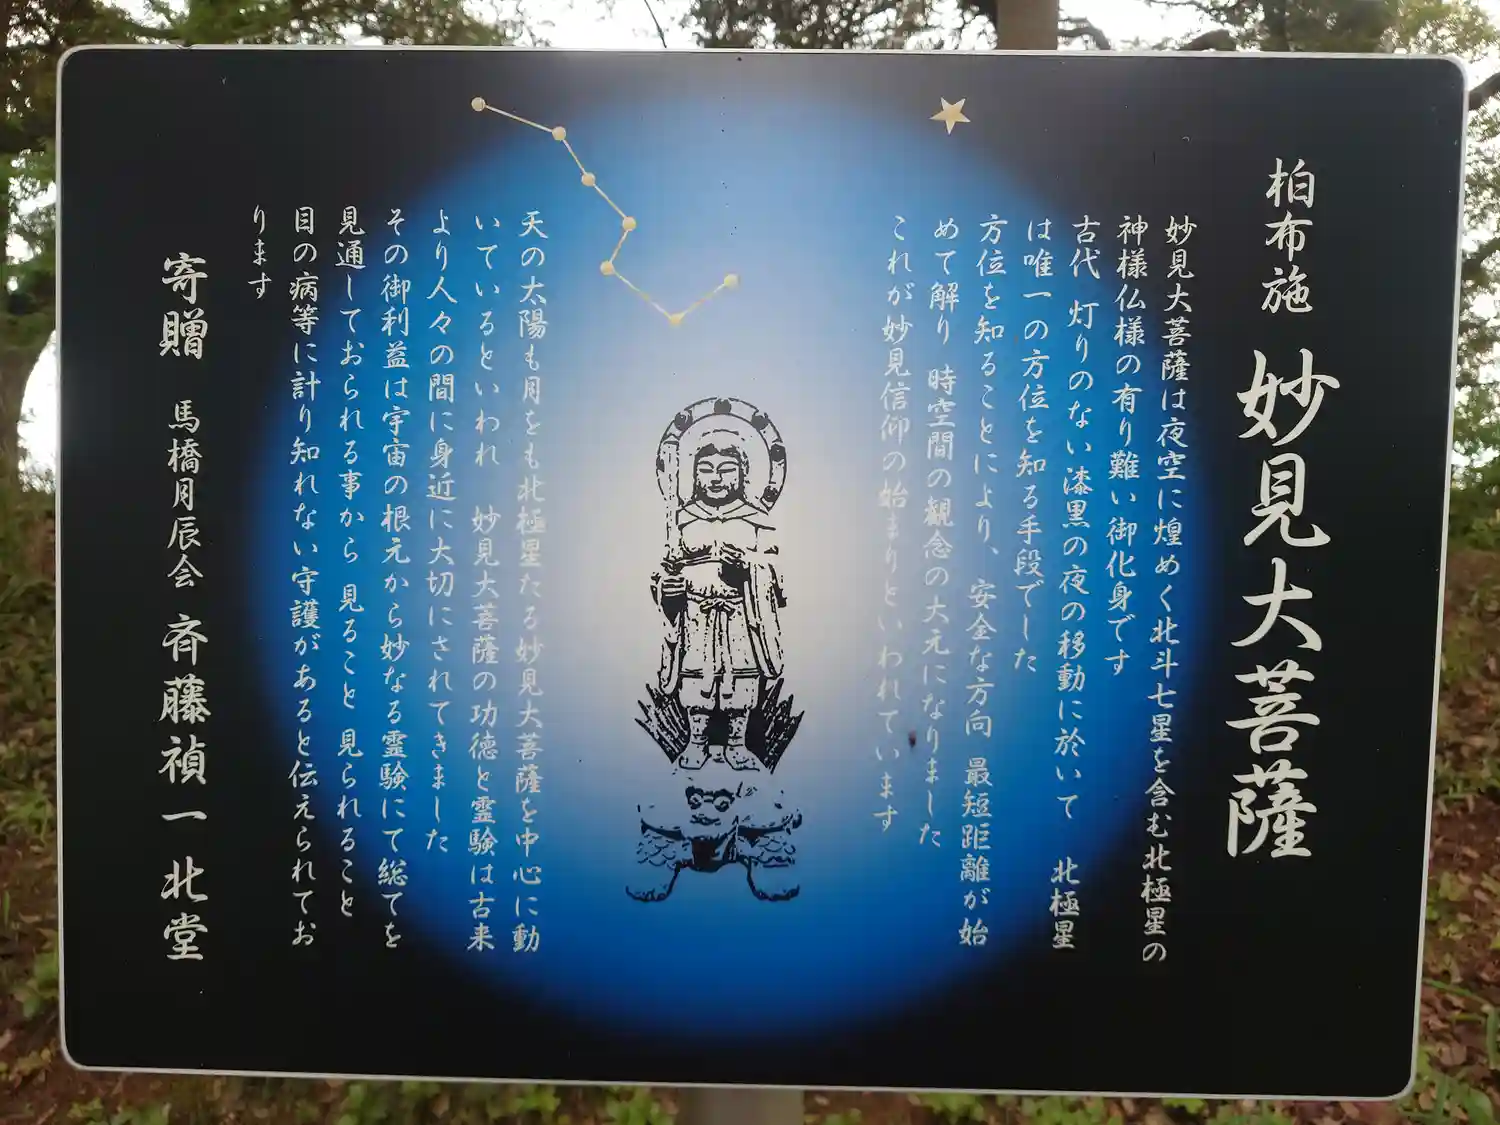 柏布施 妙見大菩薩
妙見大菩薩は夜空に煌めく北斗七星を含む北極星の
神様仏様の有り難い御化身です
古代 灯りのない漆黒の夜の移動に於いて 北極星
は唯一の方位を知る手段でした
方位を知ることにより、安全な方向 最短距離が始
めて解り 時空間の観念の大元になりました
これが妙見信仰の始まりといわれています
天の太陽も月をも北極星たる妙見大菩薩を中心に動
いているといわれ 妙見大菩薩の功徳と霊験は古来
より人々の間に身近に大切にされてきました
その御利益は宇宙の根元から妙なる霊験にて総てを
見通しておられる事から 見ること 見られること
目の病等に計り知れない守護があると伝えられてお
ります
寄贈 馬橋月辰会 斉藤禎一 北堂